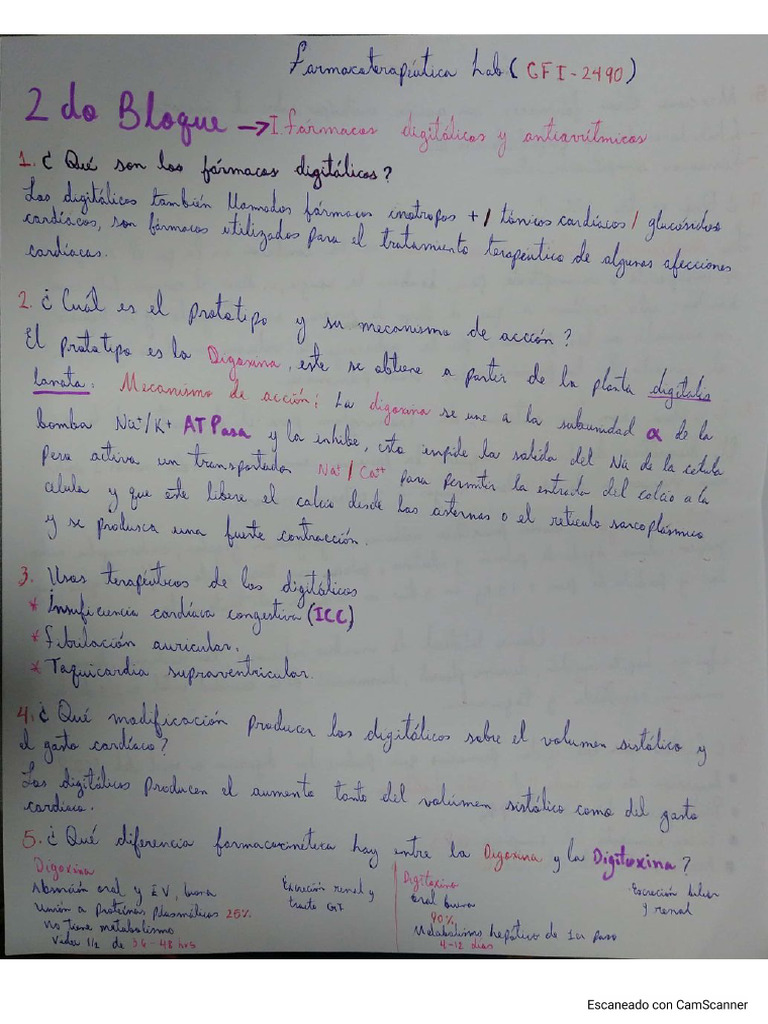 Farmacoterapéutica Lab (GFI-2490)
2do Bloque → I. fármacos digitálicos y antiarrítmicos
1. ¿Qué son los fármacos digitálicos?
Los digitálicos también llamados fármacos inotropos + / tónicos cardíacos / glucósidos
cardíacos, son fármacos utilizados para el tratamiento terapéutico de algunas afecciones
cardíacas.
2. ¿Cuál es el prototipo y su mecanismo de acción?
El prototipo es la Digoxina, este se obtiene a partir de la planta digitalis
lanata. Mecanismo de acción: La digoxina se une a la subunidad α de la
bomba Na+/K+ ATPasa y la inhibe, esto impide la salida del Na de la celula
pero activa un transportador Na+/Ca++ para permitir la entrada del calcio a la
celula y que este libere el calcio desde las cisternas o el retículo sarcoplásmico
y se produsca una fuerte contracción.
3. Usos terapéuticos de los digitálicos
* Insuficiencia cardíaca congestiva (ICC)
* Fibrilación auricular.
* Taquicardia supraventricular.
4. ¿Qué modificación producen los digitálicos sobre el volumen sistólico y
el gasto cardíaco?
Los digitálicos producen el aumento tanto del volumen sistólico como del gasto
cardíaco.
5. ¿Qué diferencia farmacocinética hay entre la Digoxina y la Digitoxina?
Digoxina
Absorción oral y EV, buena
Unión a proteínas plasmáticas 25%
No tiene metabolismo
Vida 1/2 de 36-48 hrs
Excreción renal y
tracto GI
Digitoxina
oral buena
90%
Metabolismo hepático de 1er paso
4-12 días
Excreción biliar
y renal
Escaneado con CamScanner